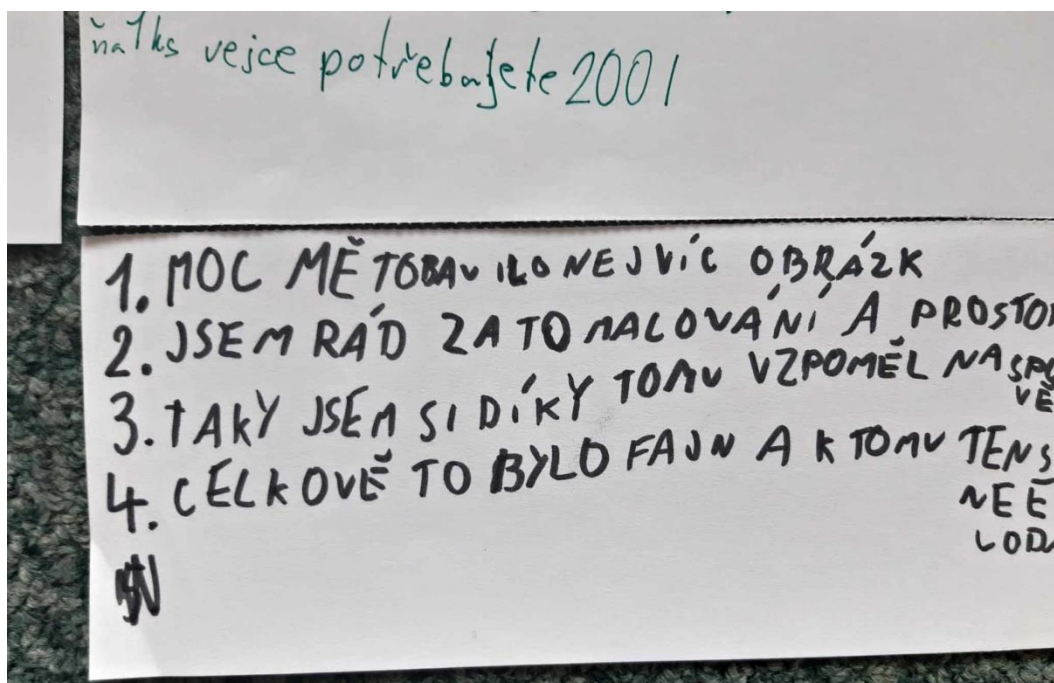 vejce potřebujete 2001
1. MOC MĚ TO BAVILO NEJVÍC OBRÁZK
2. JSEM RÁD ZA TO MALOVÁNÍ A PROSTO
3. TAKY JSEM SI DÍKY TOMU VZPOMĚL NA SPO
VĚ
4. CELKOVĚ TO BYLO FAJN A K TOMU TEN S
NEE
LOD